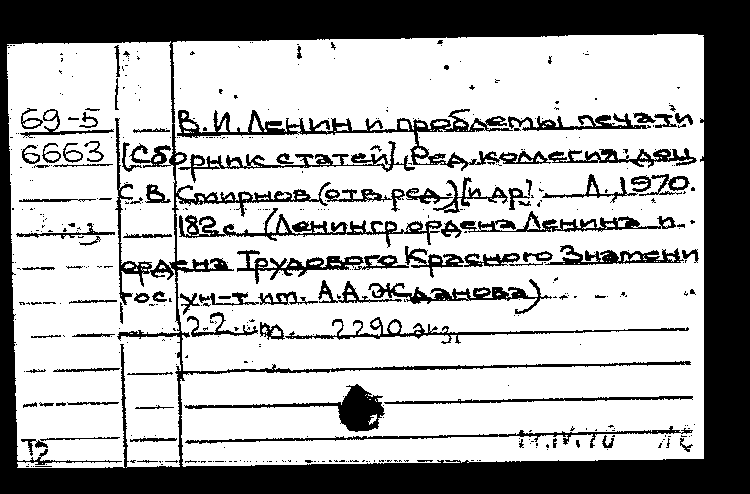 69-5 В.И. Ленин и проблемы печати.
6663 [Сборник статей]. [Ред. коллегия: доц.
С.В. Смирнов (отв. ред.) [и др]. Л., 1970.
182 с. (Ленингр. ордена Ленина и
ордена Трудового Красного Знамени
гос. ун-т им. А.А. Жданова)
2290 экз.
12 IV.70